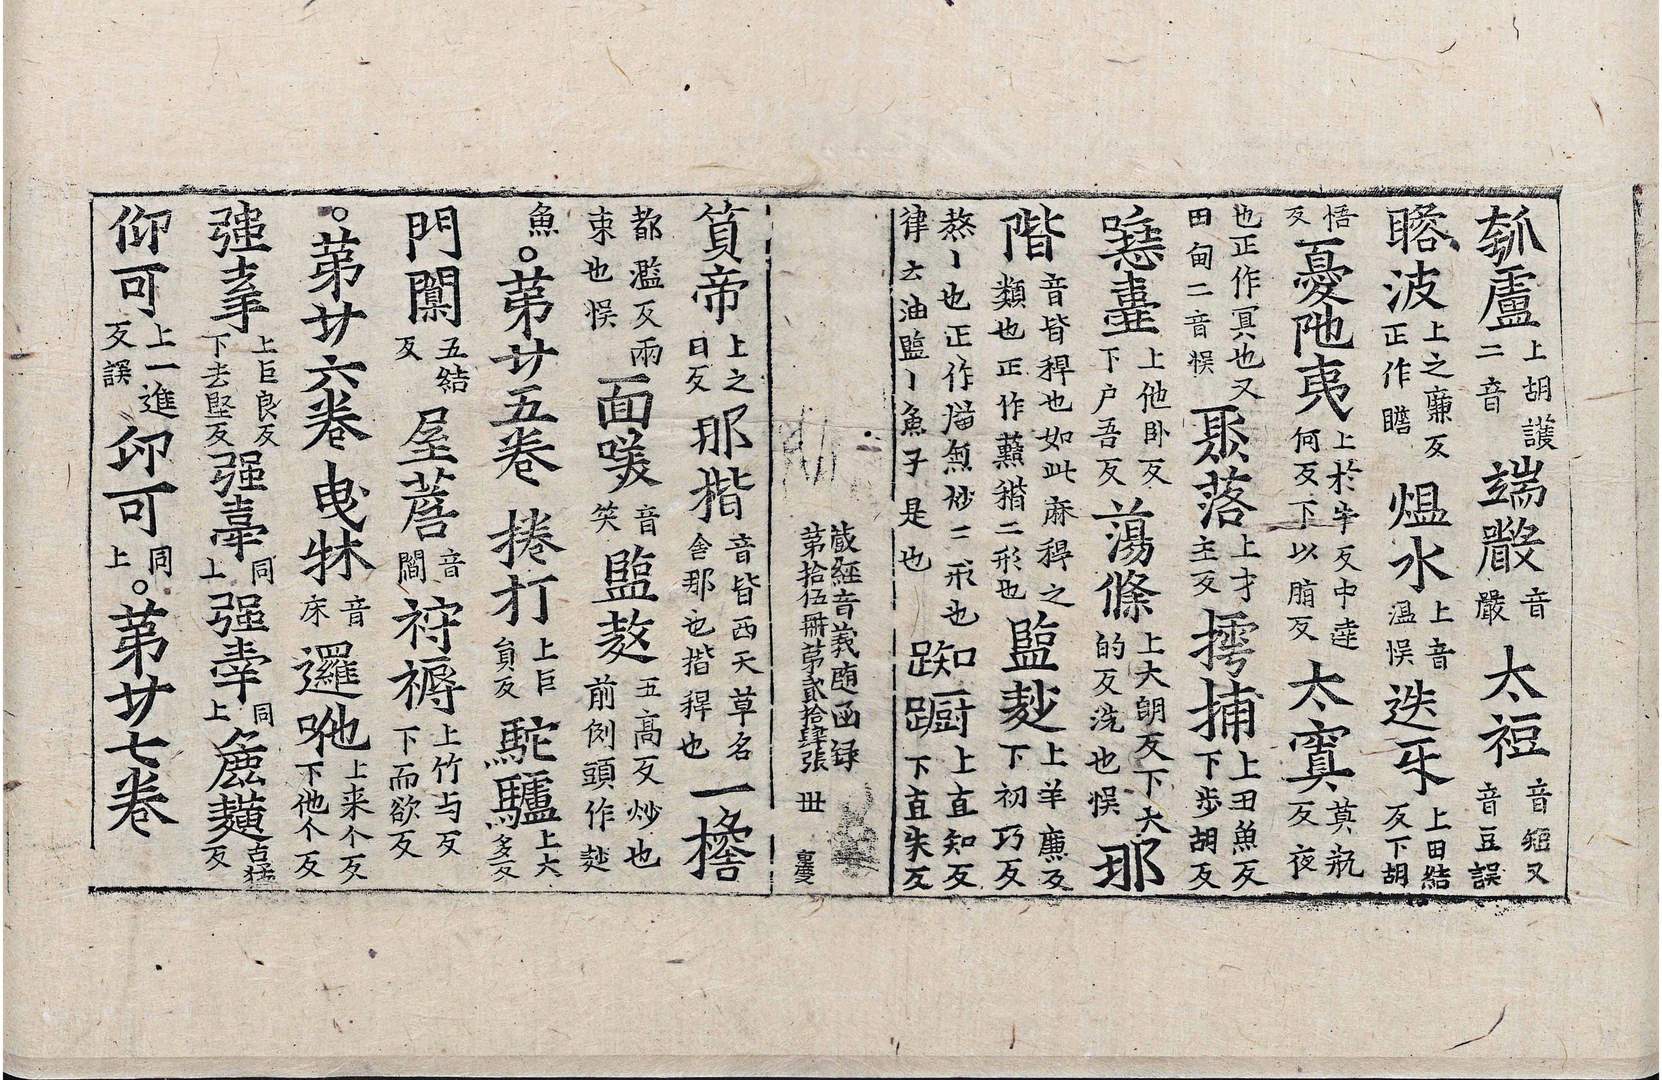 瓠盧上胡護二音端嚴音嚴太𥘉音短又音豆誤
瞻波上之廉反正作瞻熅水上音溫悮迭互上田結反下胡
悟反憂陁夷上於牛反中達何反下以脂反太㝠莫瓶反夜
也正作冥也又田甸二音悮聚落上才主反摴捕上丑魚反下步胡反
唾壷上他卧反下户吾反蕩條上大朗反下大的反洗也悮那
階音皆稈也如此麻稈之類也正作䕸䅥二形也監麨上羊廉反下初巧反
熬丶也正作㷅𤎅炒二形也律云油監丶魚子是也踟蹰上直知反下直朱反
藏經音義随函録第拾伍冊第貳拾肆張 丗
質帝上之日反那揩音皆西天草名舍那也揩稈也一擔
都濫反兩束也悮面𠯗音笑監𪍑五高反炒也前例頭作麨
魚。苐廿五卷 捲打上巨員反駝驢上大多反
門闑五結反屋𦽦音簷䘢褥上竹与反下而欲反
。苐廿六卷 曳牀音床邏咃上来个反下他个反
强牽上巨良反下去堅反强牽同上强牽同上麁䵃古猛反
仰可上一進反誤仰可同上。苐廿七卷